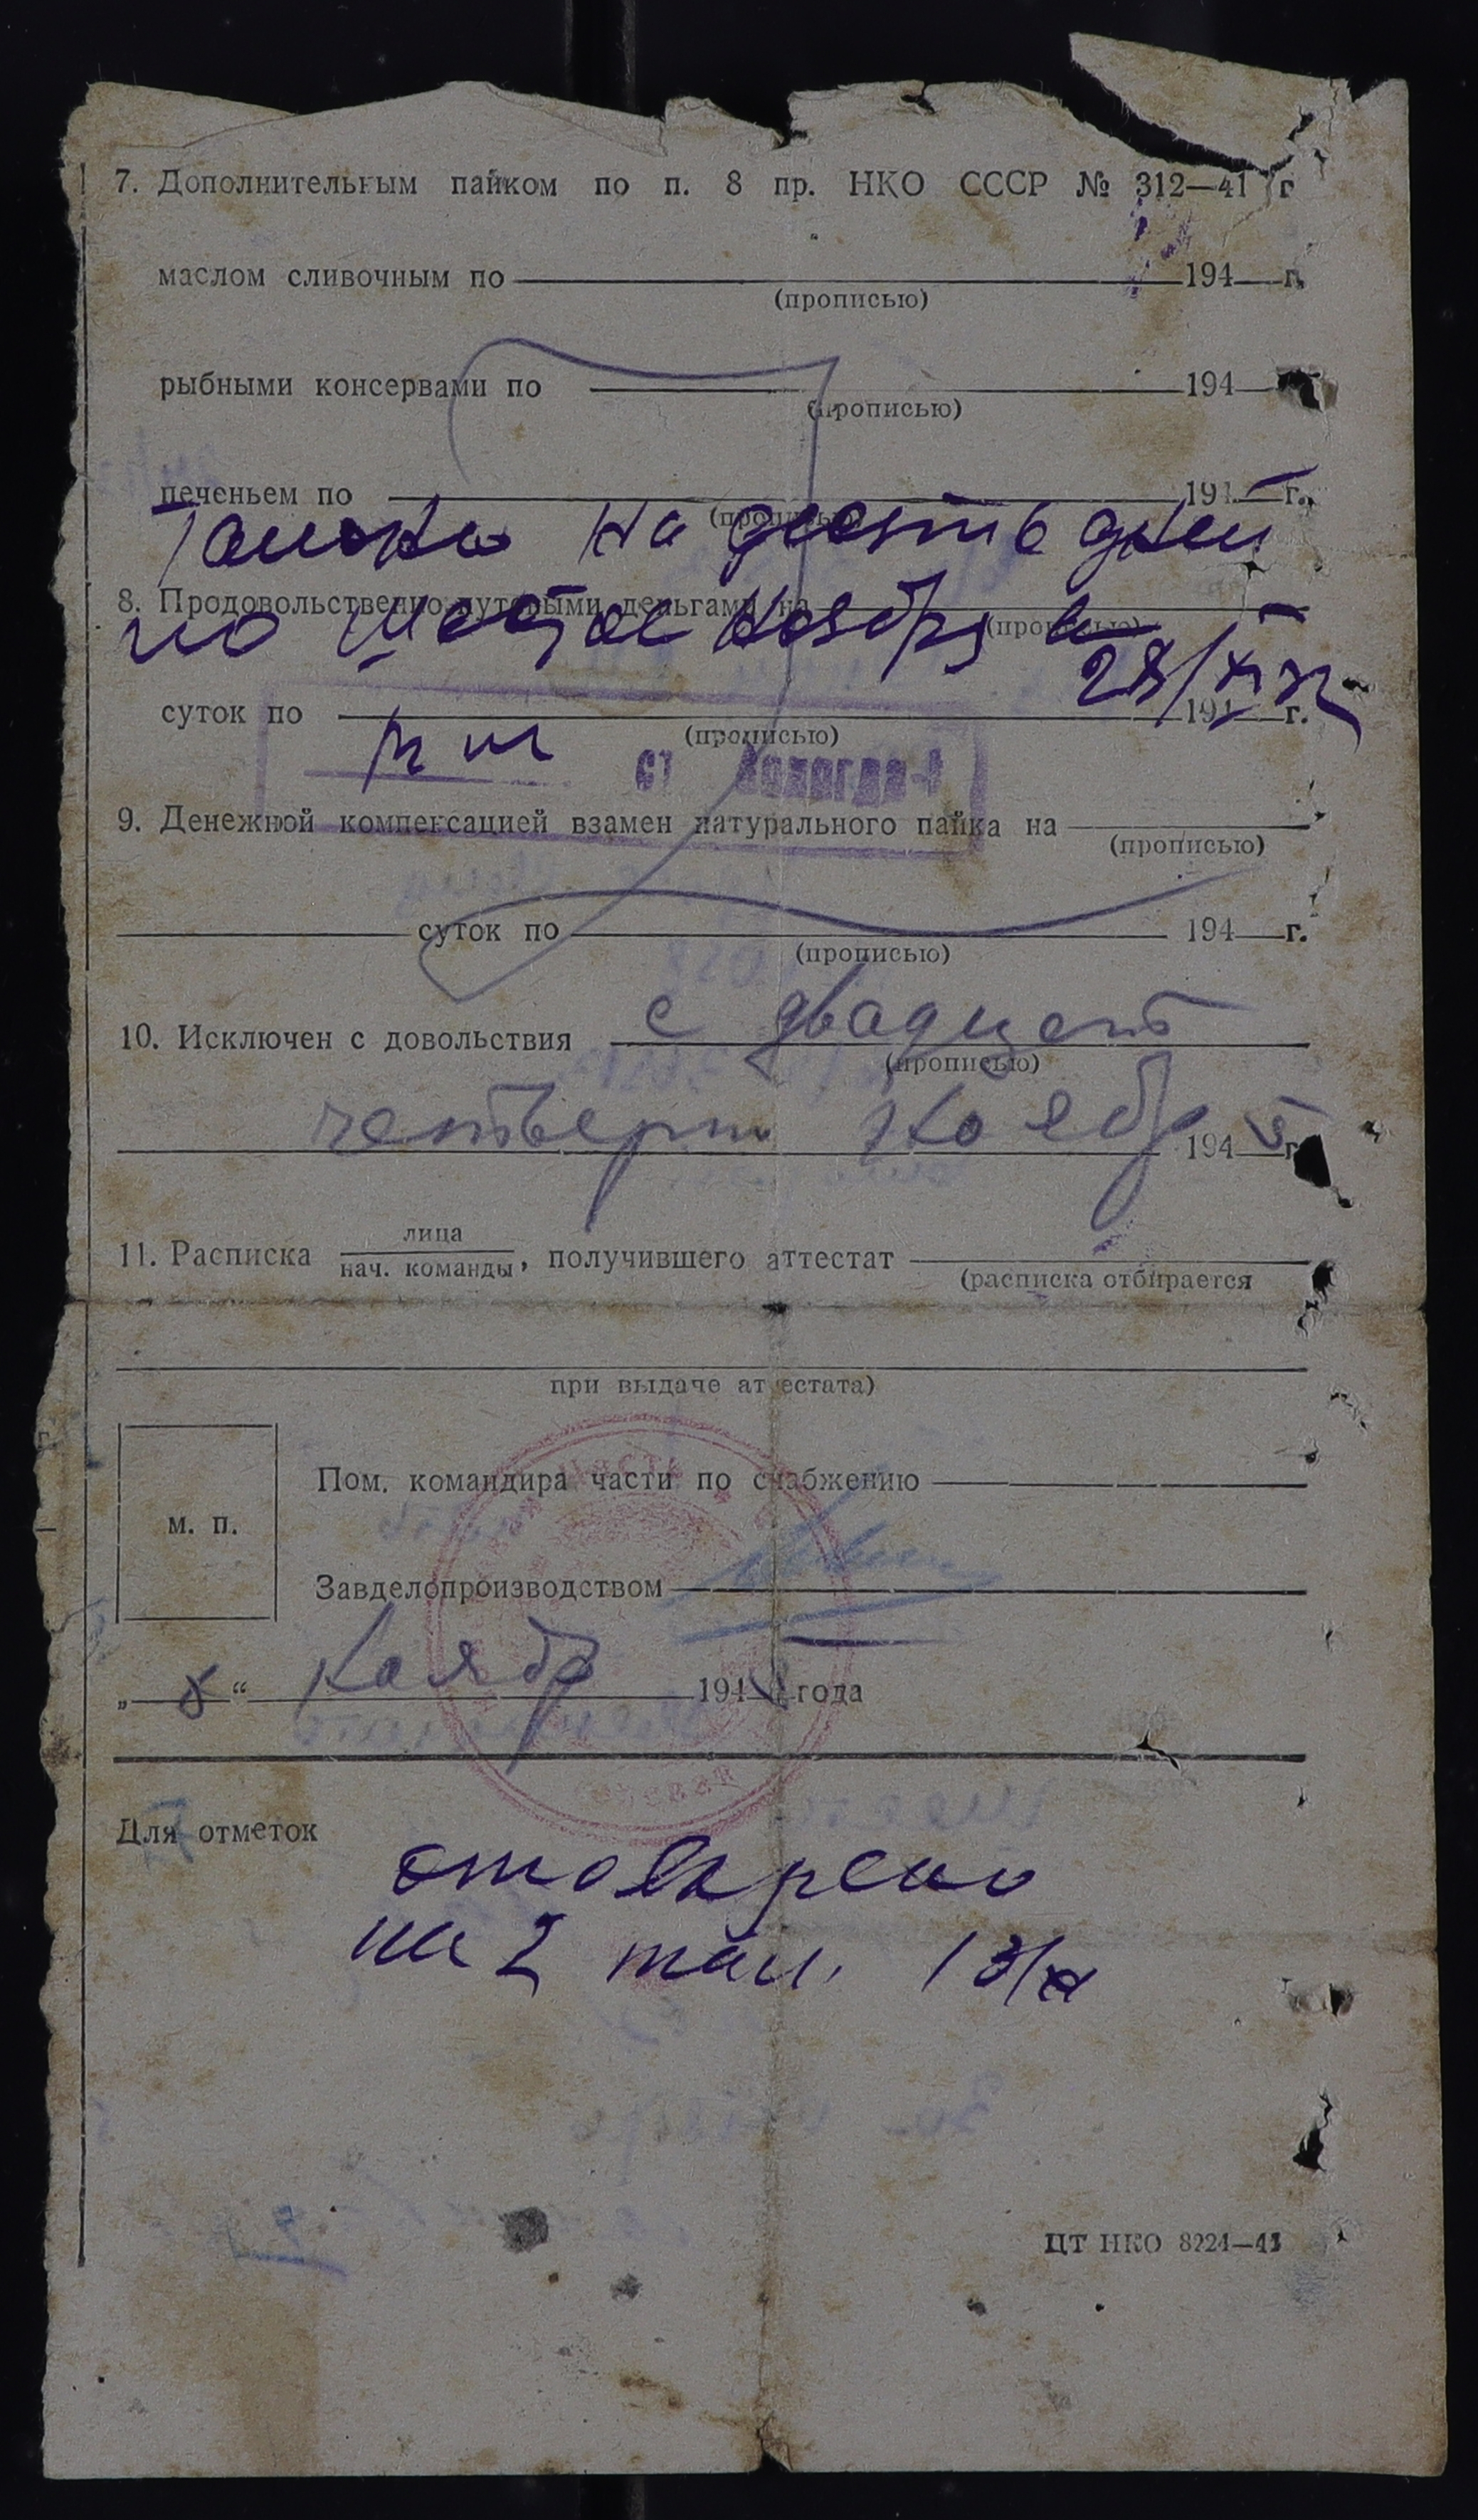 7. Дополнительным пайком по п. 8 пр. НКО СССР № 312—41 г
маслом сливочным по 194 г.
(прописью)
рыбными консервами по 194
(прописью)
печеньем по 194 г.,
(прописью)
на десять дней
8. Продовольственно-путевыми деньгами на
(прописью)
по шестое ноября
28/XI
суток по 194 г.
(прописью)
ст Вологда-1
9. Денежной компенсацией взамен натурального пайка на
(прописью)
суток по 194 г.
(прописью)
10. Исключен с довольствия с двадцать
(прописью)
четверт ноябр 194 г
11. Расписка лица / нач. команды, получившего аттестат
(расписка отбирается
при выдаче аттестата)
Пом. командира части по снабжению
м. п.
Завделопроизводством
„ 8 “ ноябр 194 года
Для отметок
отоварено
на 2 тал. 13/XI
ЦТ НКО 8224—43